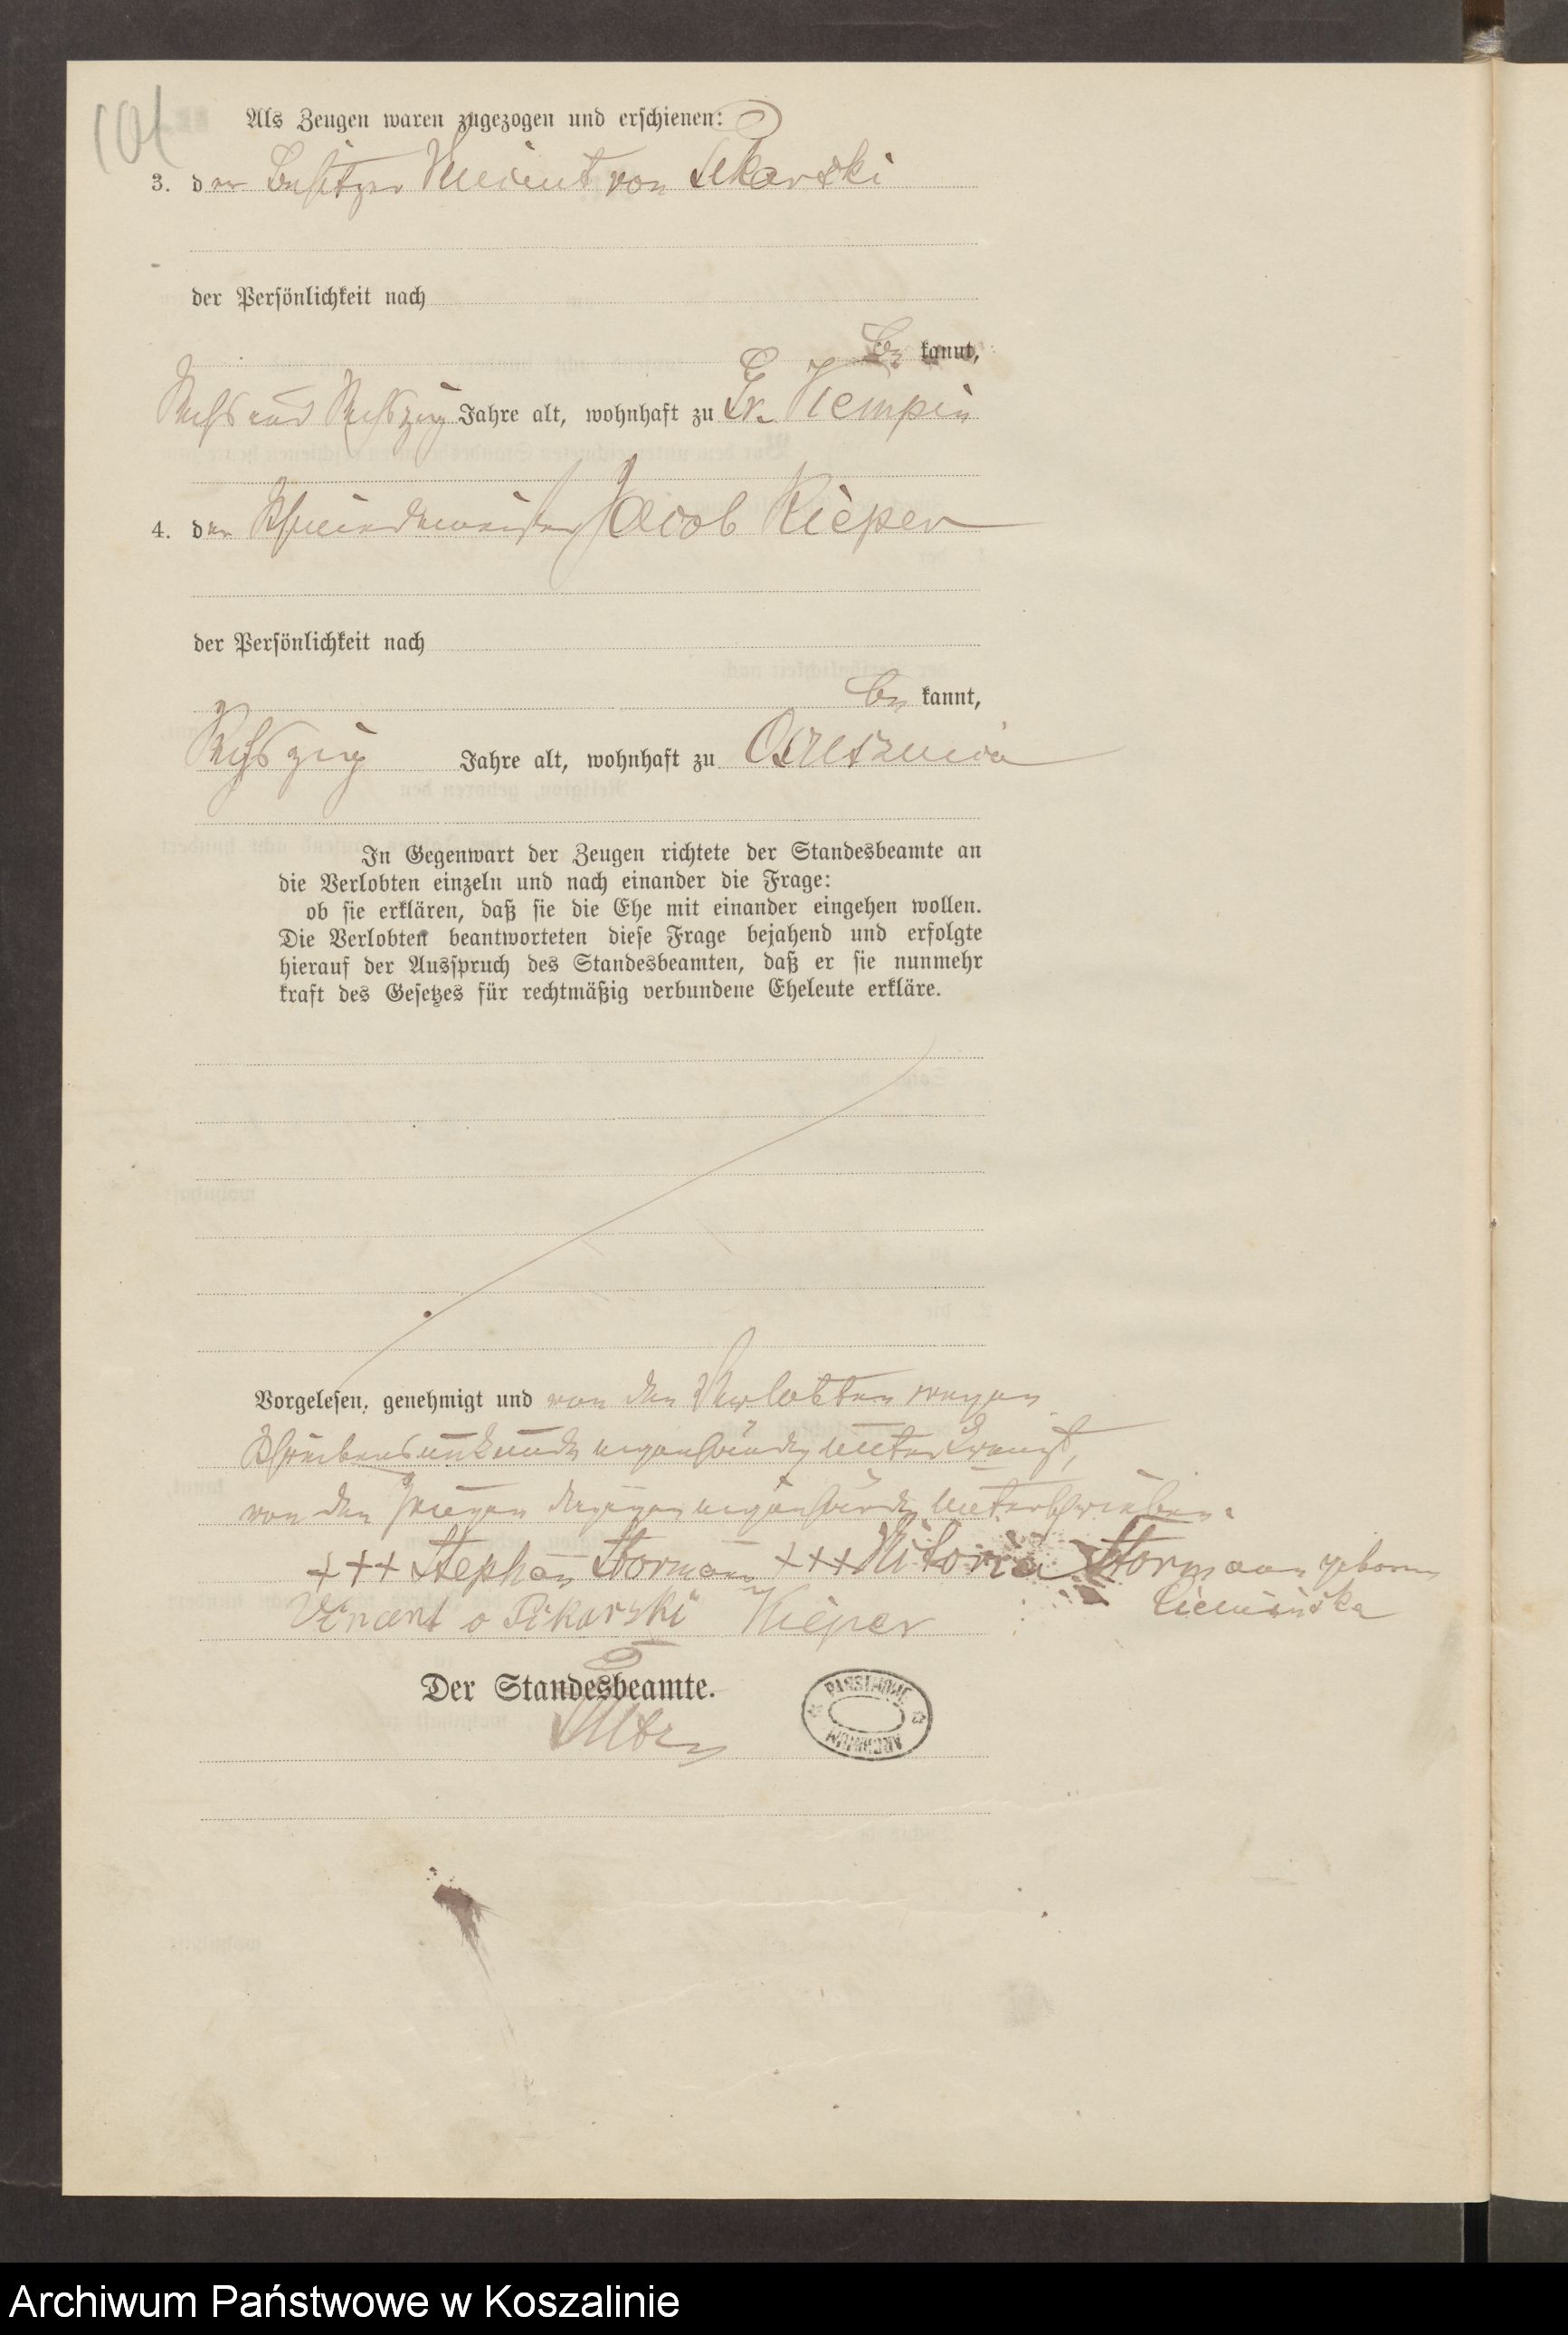 101
Als Zeugen waren zugezogen und erschienen:
3. der Besitzer Vincent von Pikarski
der Persönlichkeit nach
be kannt,
Sechs und Sechszig Jahre alt, wohnhaft zu Gr.
4. der Schmiedemeister Jacob Kieper
der Persönlichkeit nach
be kannt,
Sechszig Jahre alt, wohnhaft zu
In Gegenwart der Zeugen richtete der Standesbeamte an
die Verlobten einzeln und nach einander die Frage:
ob sie erklären, daß sie die Ehe mit einander eingehen wollen.
Die Verlobten beantworteten diese Frage bejahend und erfolgte
hierauf der Ausspruch des Standesbeamten, daß er sie nunmehr
kraft des Gesetzes für rechtmäßig verbundene Eheleute erkläre.
Vorgelesen, genehmigt und von den Verlobten wegen
Schreibensunkunde eigenhändig unterkreuzt,
von den Zeugen dagegen eigenhändig unterschrieben.
+++ Stephan Stormann +++ Vitoria Stormann geborene
Cieminska
Vincent v Pikarski Kieper
Der Standesbeamte.
PAŃSTWOWE
ARCHIWUM
Archiwum Państwowe w Koszalinie